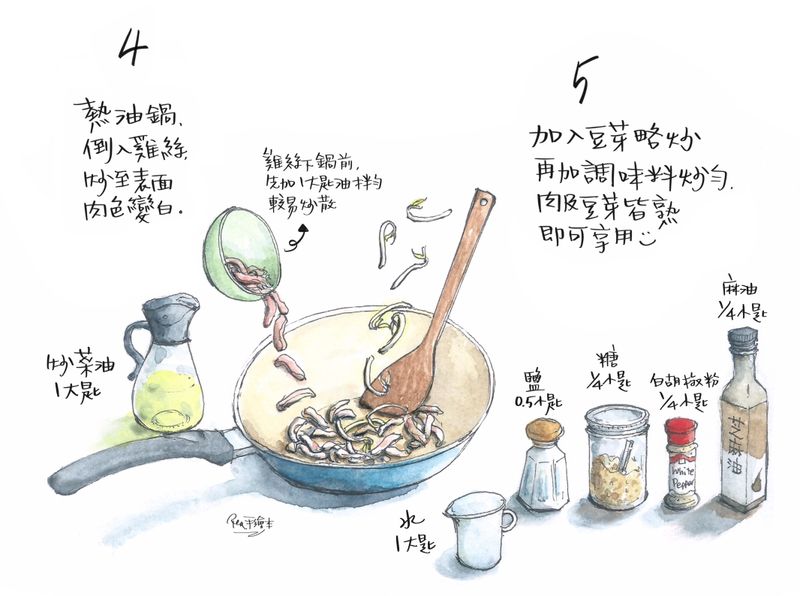 4
熱油鍋,
倒入雞絲,
炒至表面
肉色變白.
雞絲下鍋前,
先加1大匙油拌勻
較易炒散
5
加入豆芽略炒
再加調味料炒勻.
肉及豆芽皆熟
即可享用
炒菜油
1大匙
水
1大匙
鹽
0.5小匙
糖
1/4小匙
白胡椒粉
1/4小匙
White
Pepper
麻油
1/4小匙